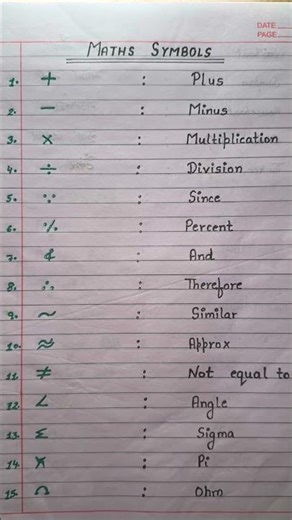 DATE
PAGE
MATHS SYMBOLS
1. + : Plus
2. − : Minus
3. × : Multiplication
4. ÷ : Division
5. ∵ : Since
6. % : Percent
7. & : And
8. ∴ : Therefore
9. ~ : Similar
10. ≈ : Approx
11. ≠ : Not equal to
12. ∠ : Angle
13. Σ : Sigma
14. π : Pi
15. Ω : Ohm